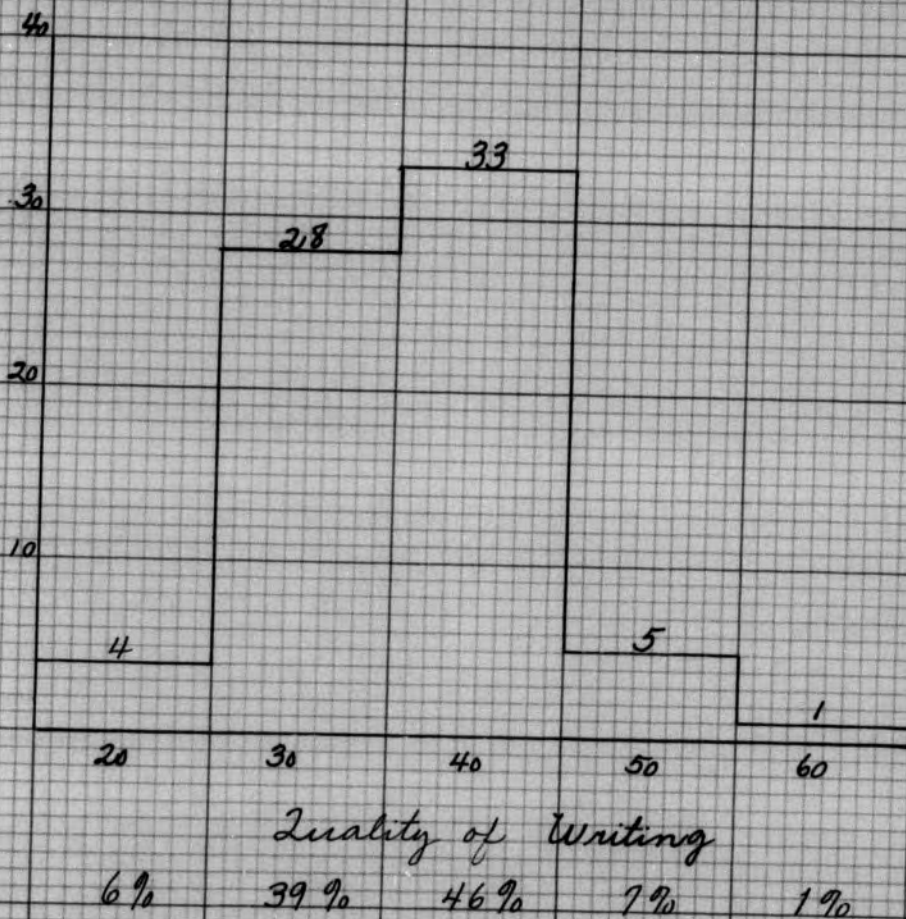 40
33
30
28
20
10
4
5
1
20 30 40 50 60
Quality of Writing
6% 39% 46% 7% 1%